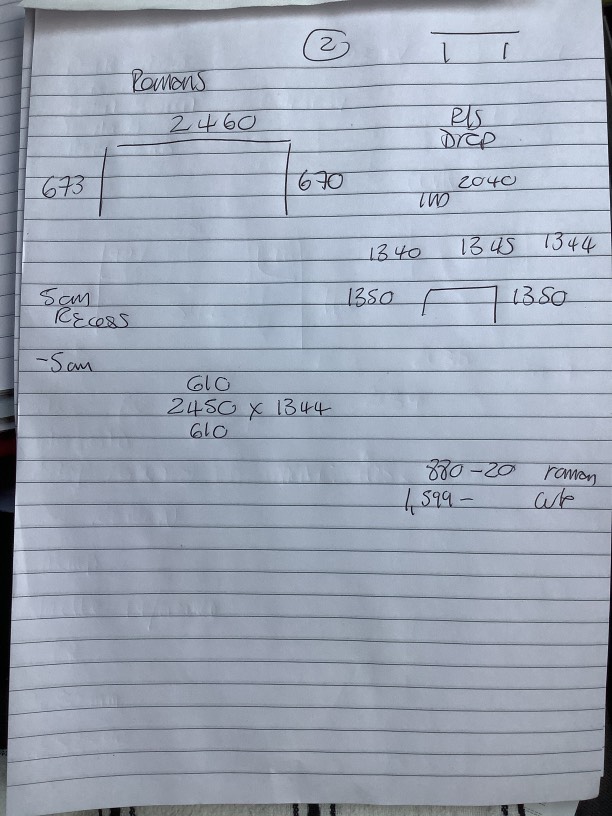 2
Romans
2460
Drop
673
670
2040
1340 1345 1344
5cm
1350
1350
Recess
-5cm
610
2450 x 1344
610
880-20 roman
1,599-